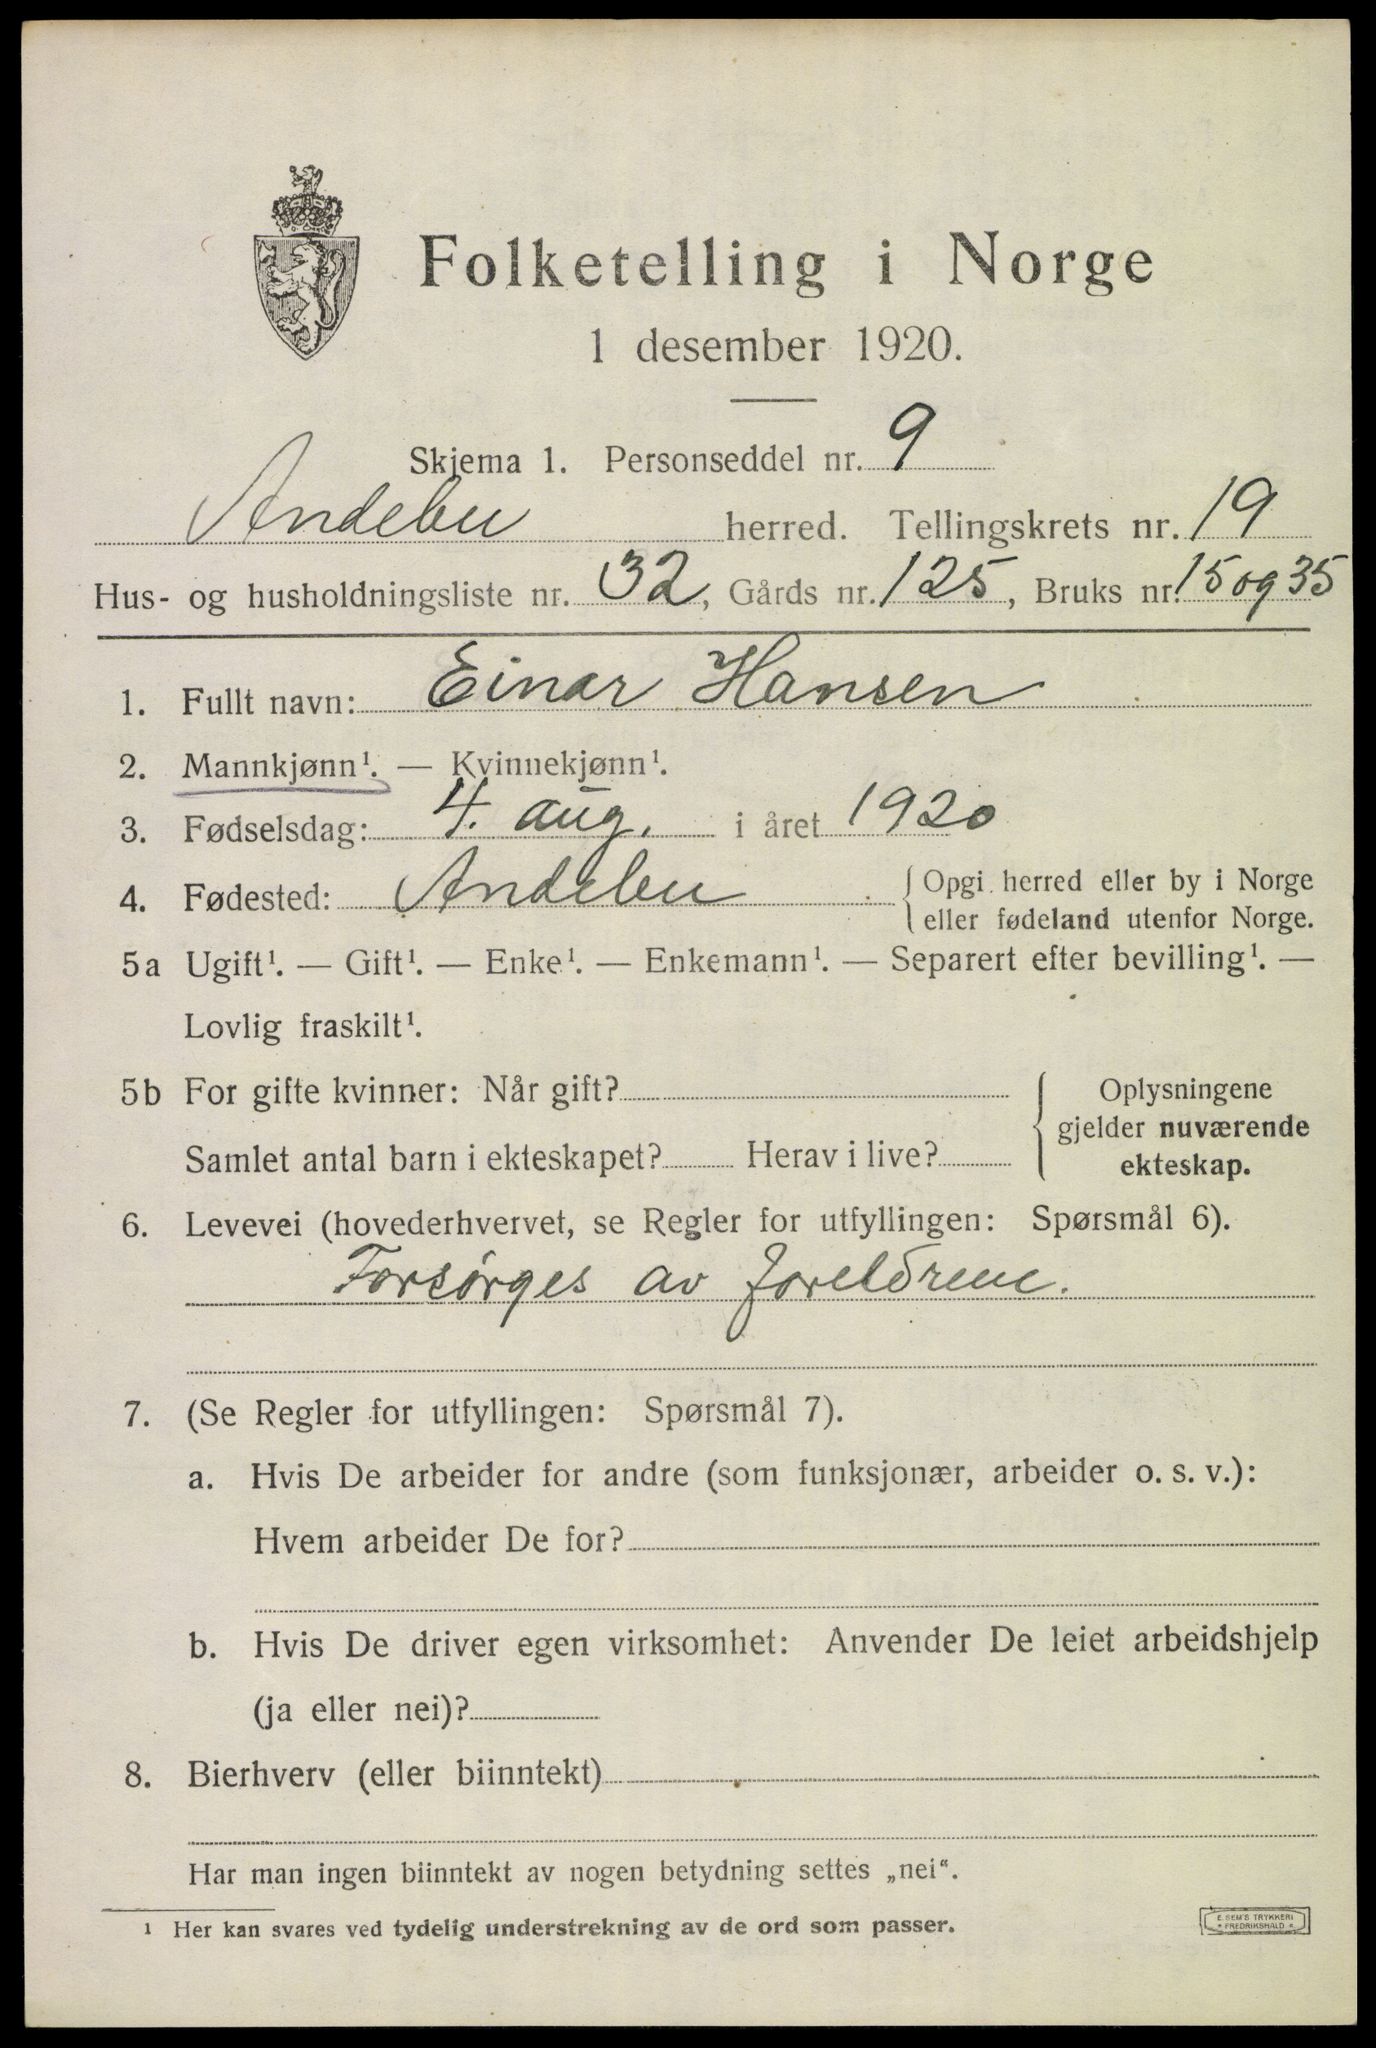 Folketelling i Norge
1 desember 1920.
Skjema 1. Personseddel nr. 9
Andebu herred. Tellingskrets nr. 19
Hus- og husholdningsliste nr. 32, Gårds nr. 125, Bruks nr. 15 og 35
1. Fullt navn: Einar Hansen
2. Mannkjønn¹. — Kvinnekjønn¹.
3. Fødselsdag: 4. aug. i året 1920
4. Fødested: Andebu { Opgi herred eller by i Norge
eller fødeland utenfor Norge.
5a Ugift¹. — Gift¹. — Enke¹. — Enkemann¹. — Separert efter bevilling¹. —
Lovlig fraskilt¹.
5b For gifte kvinner: Når gift?
Samlet antal barn i ekteskapet? Herav i live?
Oplysningene
gjelder nuværende
ekteskap.
6. Levevei (hovederhvervet, se Regler for utfyllingen: Spørsmål 6).
Forsørges av foreldrene.
7. (Se Regler for utfyllingen: Spørsmål 7).
a. Hvis De arbeider for andre (som funksjonær, arbeider o. s. v.):
Hvem arbeider De for?
b. Hvis De driver egen virksomhet: Anvender De leiet arbeidshjelp
(ja eller nei)?
8. Bierhverv (eller biinntekt)
Har man ingen biinntekt av nogen betydning settes „nei“.
¹ Her kan svares ved tydelig understrekning av de ord som passer.
E. SEM'S TRYKKERI
FREDRIKSHALD